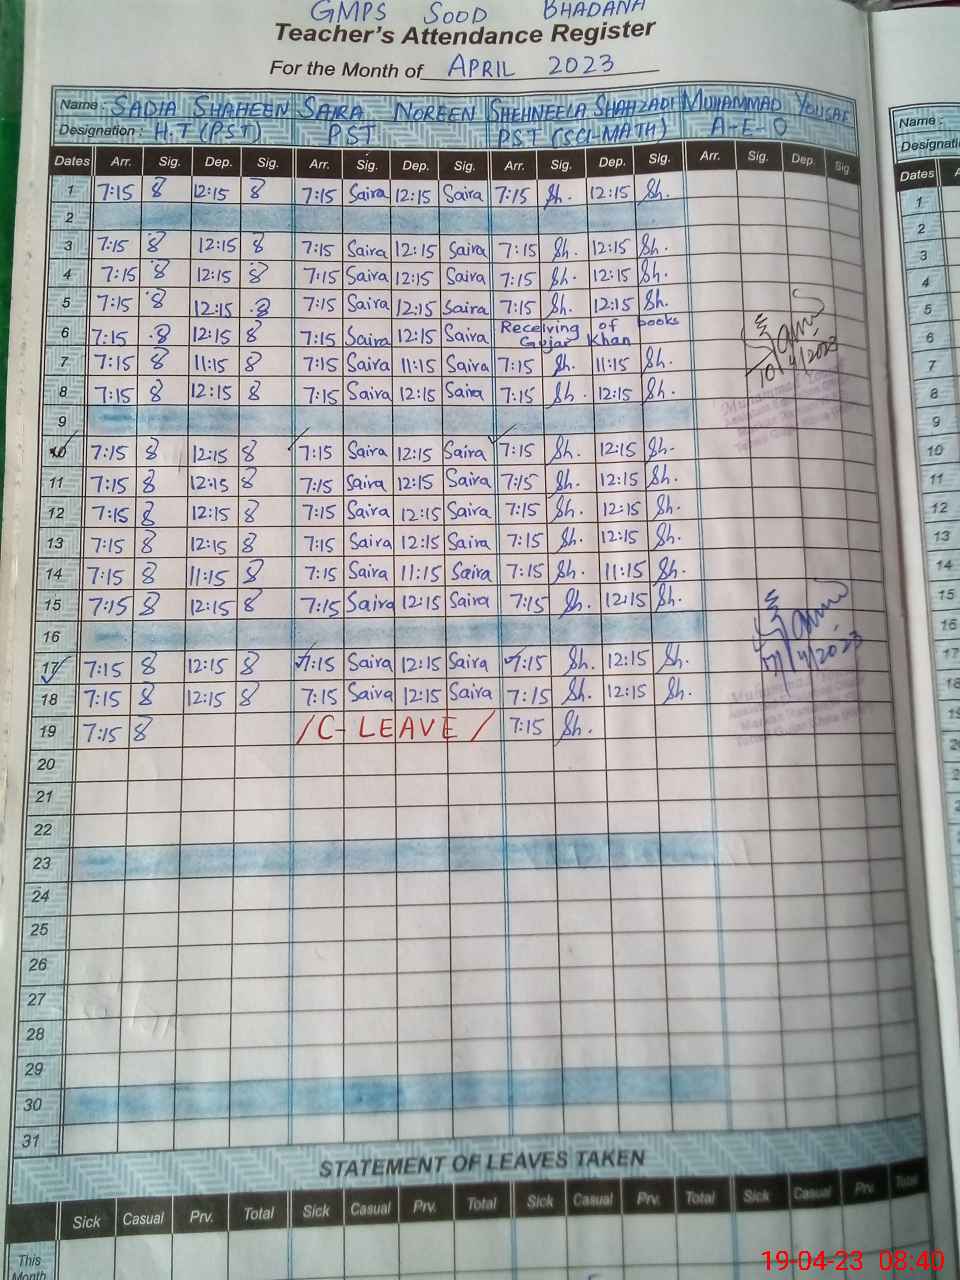 GMPS SOOD BHADANA
Teacher's Attendance Register
For the Month of APRIL 2023
Name: SADIA SHAHEEN SAIRA NOREEN SHEHNEELA SHAHZADI MUHAMMAD YOUSAF
Designation: H.T (PST) PST PST (SCI-MATH) A-E-O
Dates Arr. Sig. Dep. Sig. Arr. Sig. Dep. Sig. Arr. Sig. Dep. Sig. Arr. Sig. Dep. Sig
1 7:15 8 12:15 8 7:15 Saira 12:15 Saira 7:15 Sh. 12:15 Sh.
2
3 7:15 8 12:15 8 7:15 Saira 12:15 Saira 7:15 Sh. 12:15 Sh.
4 7:15 8 12:15 8 7:15 Saira 12:15 Saira 7:15 Sh. 12:15 Sh.
5 7:15 8 12:15 8 7:15 Saira 12:15 Saira 7:15 Sh. 12:15 Sh.
6 7:15 8 12:15 8 7:15 Saira 12:15 Saira Receiving of books
Gujar Khan
7 7:15 8 11:15 8 7:15 Saira 11:15 Saira 7:15 Sh. 11:15 Sh.
10/4/2023
8 7:15 8 12:15 8 7:15 Saira 12:15 Saira 7:15 Sh. 12:15 Sh.
9
10 7:15 8 12:15 8 7:15 Saira 12:15 Saira 7:15 Sh. 12:15 Sh.
11 7:15 8 12:15 8 7:15 Saira 12:15 Saira 7:15 Sh. 12:15 Sh.
12 7:15 8 12:15 8 7:15 Saira 12:15 Saira 7:15 Sh. 12:15 Sh.
13 7:15 8 12:15 8 7:15 Saira 12:15 Saira 7:15 Sh. 12:15 Sh.
14 7:15 8 11:15 8 7:15 Saira 11:15 Saira 7:15 Sh. 11:15 Sh.
15 7:15 8 12:15 8 7:15 Saira 12:15 Saira 7:15 Sh. 12:15 Sh.
16
17 7:15 8 12:15 8 7:15 Saira 12:15 Saira 7:15 Sh. 12:15 Sh.
17/4/2023
18 7:15 8 12:15 8 7:15 Saira 12:15 Saira 7:15 Sh. 12:15 Sh.
19 7:15 8 /C-LEAVE/ 7:15 Sh.
20
21
22
23
24
25
26
27
28
29
30
31
STATEMENT OF LEAVES TAKEN
Sick Casual Prv. Total Sick Casual Prv. Total Sick Casual Prv. Total Sick Casual Prv. Total
This
Month
Name:
Designati
Dates
1
2
3
4
5
6
7
8
9
10
11
12
13
14
15
16
17
18
19
19-04-23 08:40